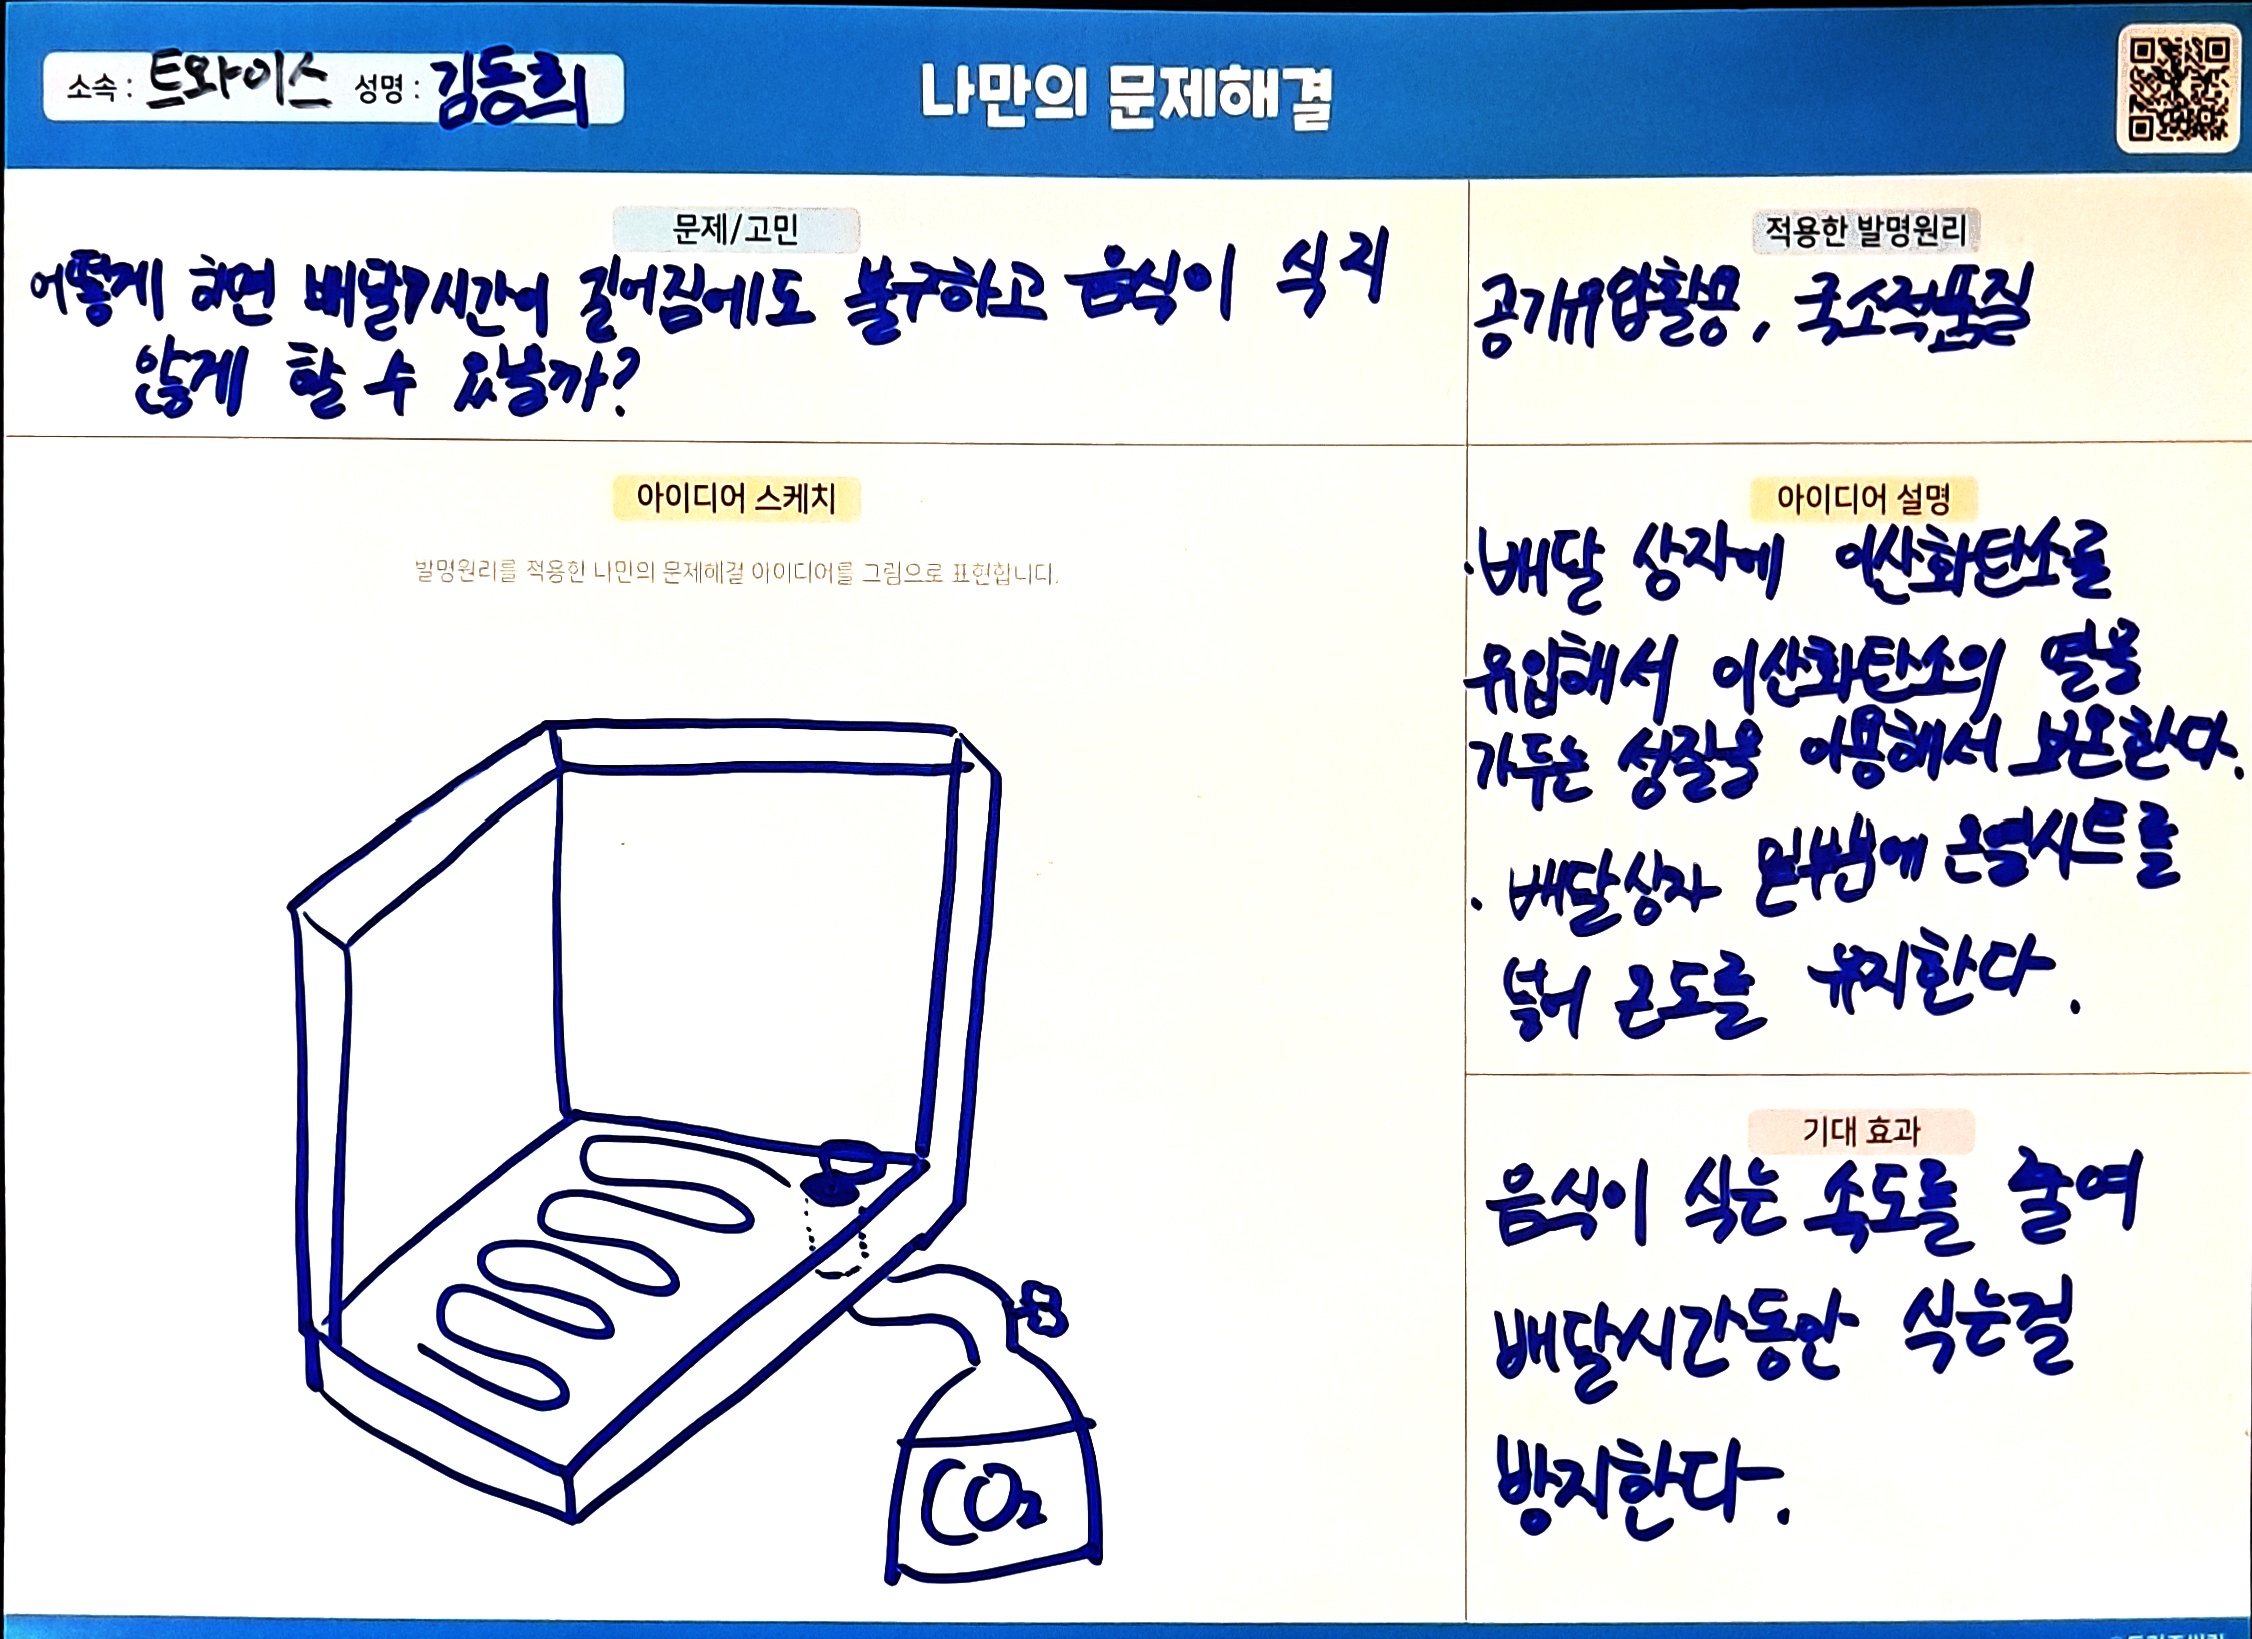 소속 : 트와이스 성명 : 김동희
나만의 문제해결
문제/고민
어떻게 하면 배달시간이 길어짐에도 불구하고 음식이 식지
않게 할 수 있을까?
적용한 발명원리
공기유압활용, 국소적품질
아이디어 스케치
발명원리를 적용한 나만의 문제해결 아이디어를 그림으로 표현합니다.
CO₂
아이디어 설명
· 배달 상자에 이산화탄소를
유입해서 이산화탄소의 열을
가두는 성질을 이용해서 보온한다.
· 배달상자 밑부분에 온열시트를
넣어 온도를 유지한다.
기대 효과
음식이 식는 속도를 줄여
배달시간동안 식는걸
방지한다.